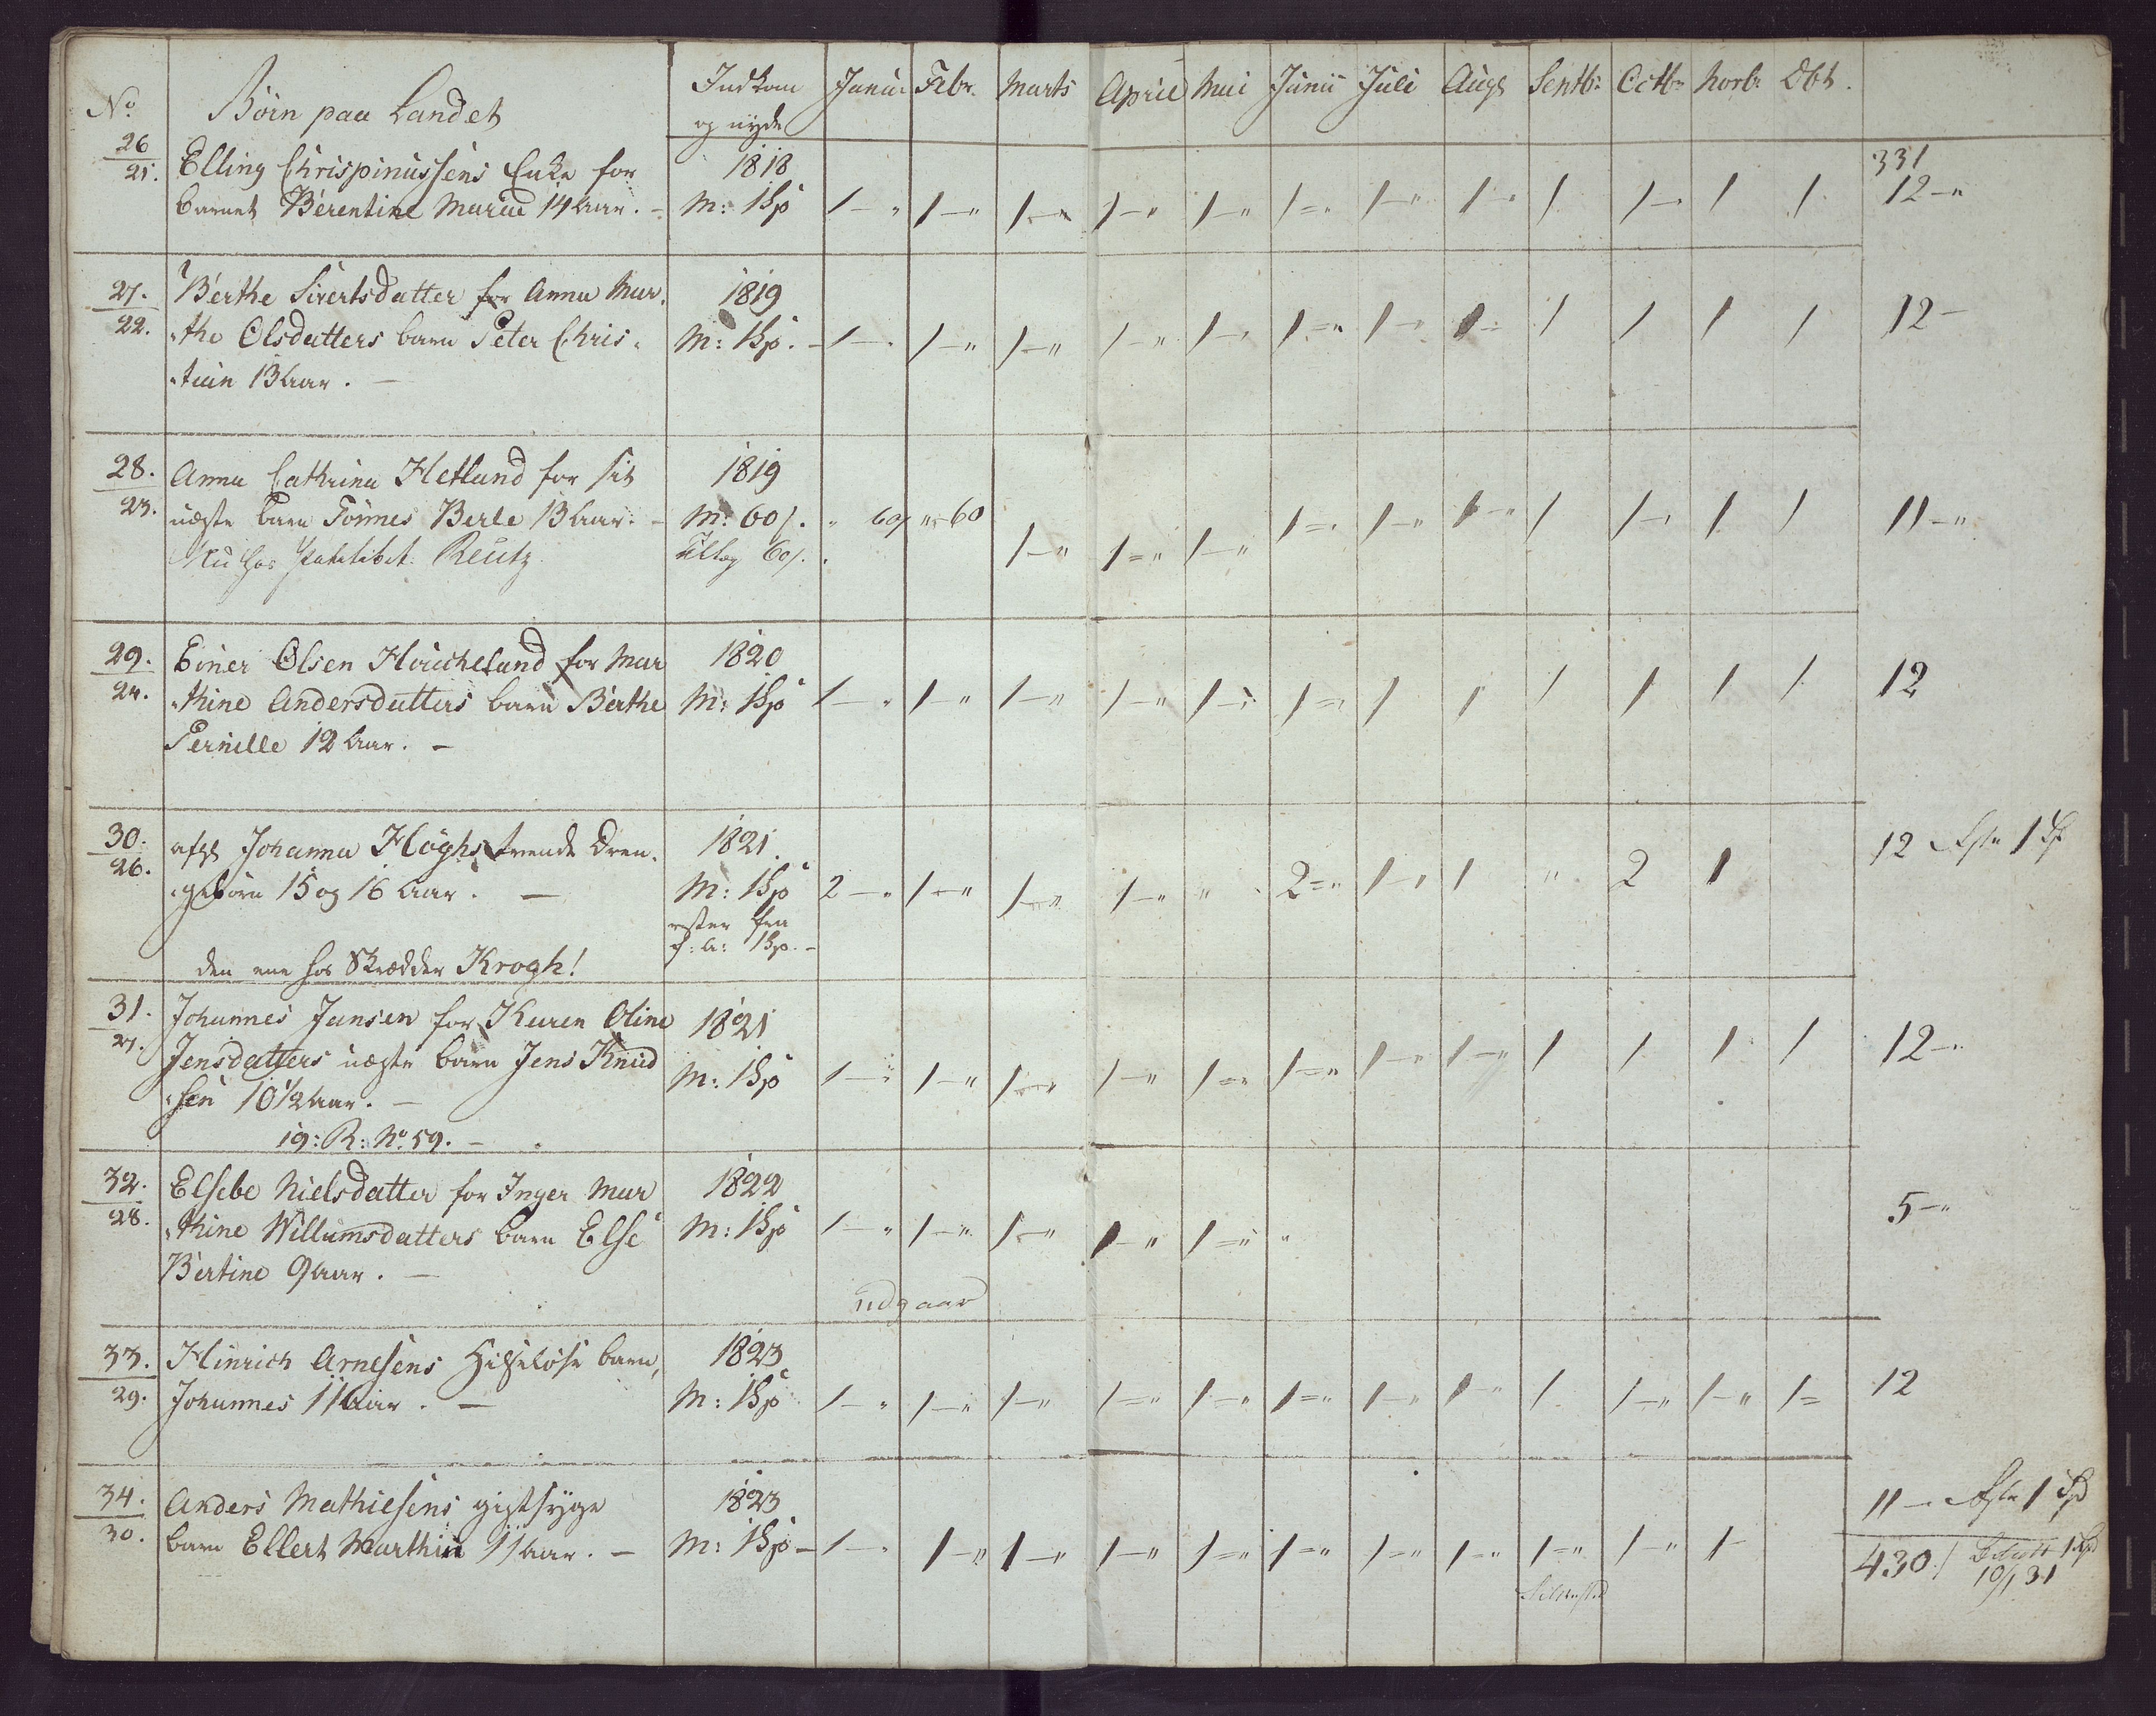 No Börn paa Landet Indkom og nyde Janua: Febr. Marts April Mai Junii Juli Aug Septb: Octb: Novb: Dbr.
331
26/21. Elling Chrispinussens Enke for 1818
barnet Berentine Marie 14 Aar. – M: 1 Sp 1– „ 1–„ 1–„ 1–„ 1–„ 1=„ 1–„ 1– 1 1– 1 1 12–„
27./22. Berthe Sivertsdatter for Anna Mar. 1819
„the Olsdatters barn Peter Chris„ M: 1 Sp. – 1–„ 1–„ 1–„ 1–„ 1– 1=„ 1– 1– 1 1 1 1 12–
„tian 13 Aar. –
28./23. Anna Cathrina Hetland for sit 1819
uægte barn Tönnes Berle 13 Aar. – M: 60/. „ 60/ „–60 1–„ 1=„ 1–„ 1=„ 1–„ 1–„ 1 1– 1 1 11–„
Nu hos Reutz Tillæg 60/.
29./24. Einer Olsen Houcheland for Mar 1820
„thine Andersdatters barn Berthe M: 1 Sp 1– „ 1–„ 1–„ 1–„ 1– 1= 1 1 1 1 1 1 12
Pernille 12 Aar. –
30./26. afg Johanna Höghs trende Dren. 1821.
„gebörn 15 og 16 Aar. – M: 1 Sp 2–„ 1–„ 1–„ 1–„ „ 2=„ 1– 1 „ 2 1 12 Rest 1 Sp
rester fra
f: A: 1 Sp. –
den ene hos Skrædder Krogh!
31./27. Johannes Jansen for Karen Oline 1821
Jensdatters uægte barn Jens Knud M: 1 Sp 1– 1–„ 1– 1–„ 1=„ 1=„ 1– 1–„ 1 1 1 1 12–„
„sen 10½ Aar. –
19: R: No 59. –
32./28. Elsebe Nielsdatter for Inger Mar 1822
„thine Willumsdatters barn Else M: 1 Sp 1– „ 1–„ 1–„ 1–„ 1=„ „ 5–„
Bertine 9 Aar. –
udgaar
33./29. Hinrich Arnesens hielpelöse barn, 1823
Johannes 11 Aar. – M: 1 Sp 1– „ 1–„ 1–„ 1=„ 1–„ 1=„ 1–„ 1–„ 1 1–„ 1–„ 1= 12
34./30. Anders Mathiesens gigtsyge 1823
barn Ellert Marthin 11 Aar. – M: 1 Sp – 1–„ 1–„ 1–„ 1–„ 1=„ 1=„ 1=„ 1=„ 1=„ 1–„ 1– 11– Rest 1 Sp
430/ 1 Sp
10/1 31